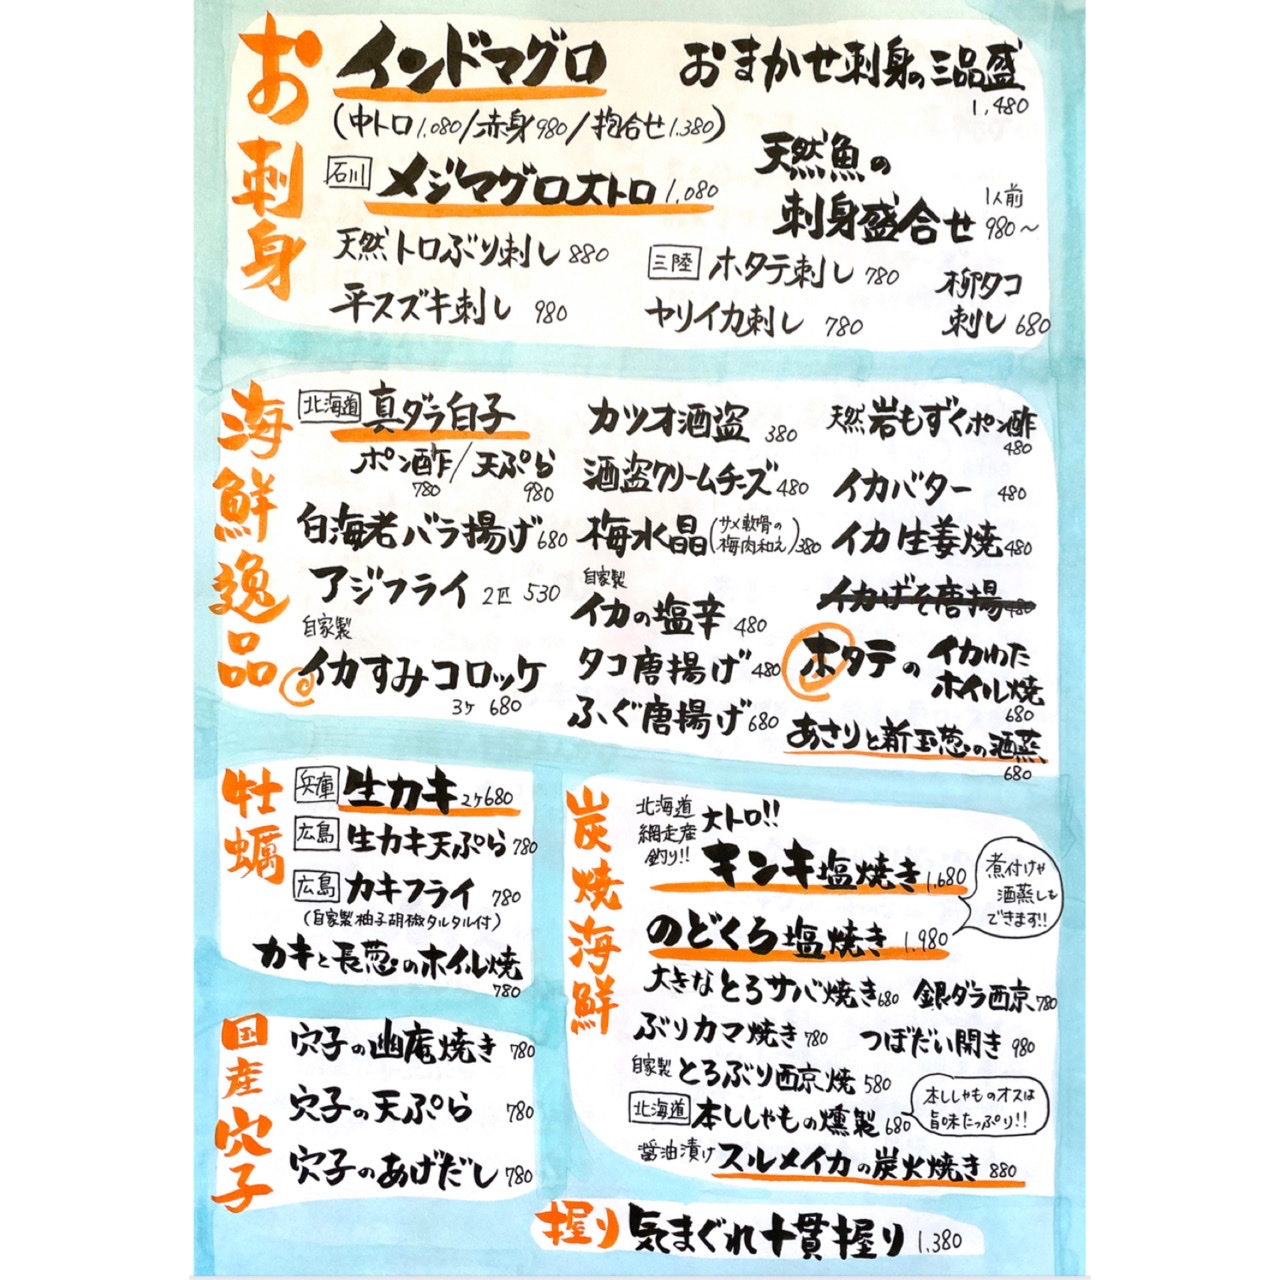 お刺身
インドマグロ
(中トロ1,080/赤身980/抱合せ1,380)
石川 メジマグロ大トロ1,080
天然トロぶり刺し 880
平スズキ刺し 980
おまかせ刺身の三品盛
1,480
天然魚の
刺身盛合せ 1人前 980〜
三陸 ホタテ刺し 780
ヤリイカ刺し 780
柳タコ
刺し 680
海鮮逸品
北海道 真ダラ白子
ポン酢/天ぷら
780 980
白海老バラ揚げ680
アジフライ 2匹 530
自家製
@イカすみコロッケ
3ヶ 680
カツオ酒盗 380
酒盗クリームチーズ480
梅水晶(サメ軟骨の梅肉和え)380
自家製
イカの塩辛 480
タコ唐揚げ480
ふぐ唐揚げ680
天然岩もずくポン酢
480
イカバター 480
イカ生姜焼480
イカげそ唐揚480
ホタテのイカわた
ホイル焼
680
あさりと新玉葱の酒蒸
680
牡蠣
兵庫 生カキ2ヶ680
広島 生カキ天ぷら780
広島 カキフライ 780
(自家製柚子胡椒タルタル付)
カキと長葱のホイル焼
780
国産穴子
穴子の幽庵焼き 780
穴子の天ぷら 780
穴子のあげだし 780
炭焼海鮮
北海道
網走産
釣り!!
大トロ!!
キンキ塩焼き1,680
煮付けや
酒蒸しも
できます!!
のどくろ塩焼き 1,980
大きなとろサバ焼き680
銀ダラ西京780
ぶりカマ焼き780
つぼだい開き 980
自家製とろぶり西京焼 580
北海道 本ししゃもの燻製680
本ししゃものオスは
旨味たっぷり!!
醤油漬けスルメイカの炭火焼き 880
握り 気まぐれ十貫握り 1,380